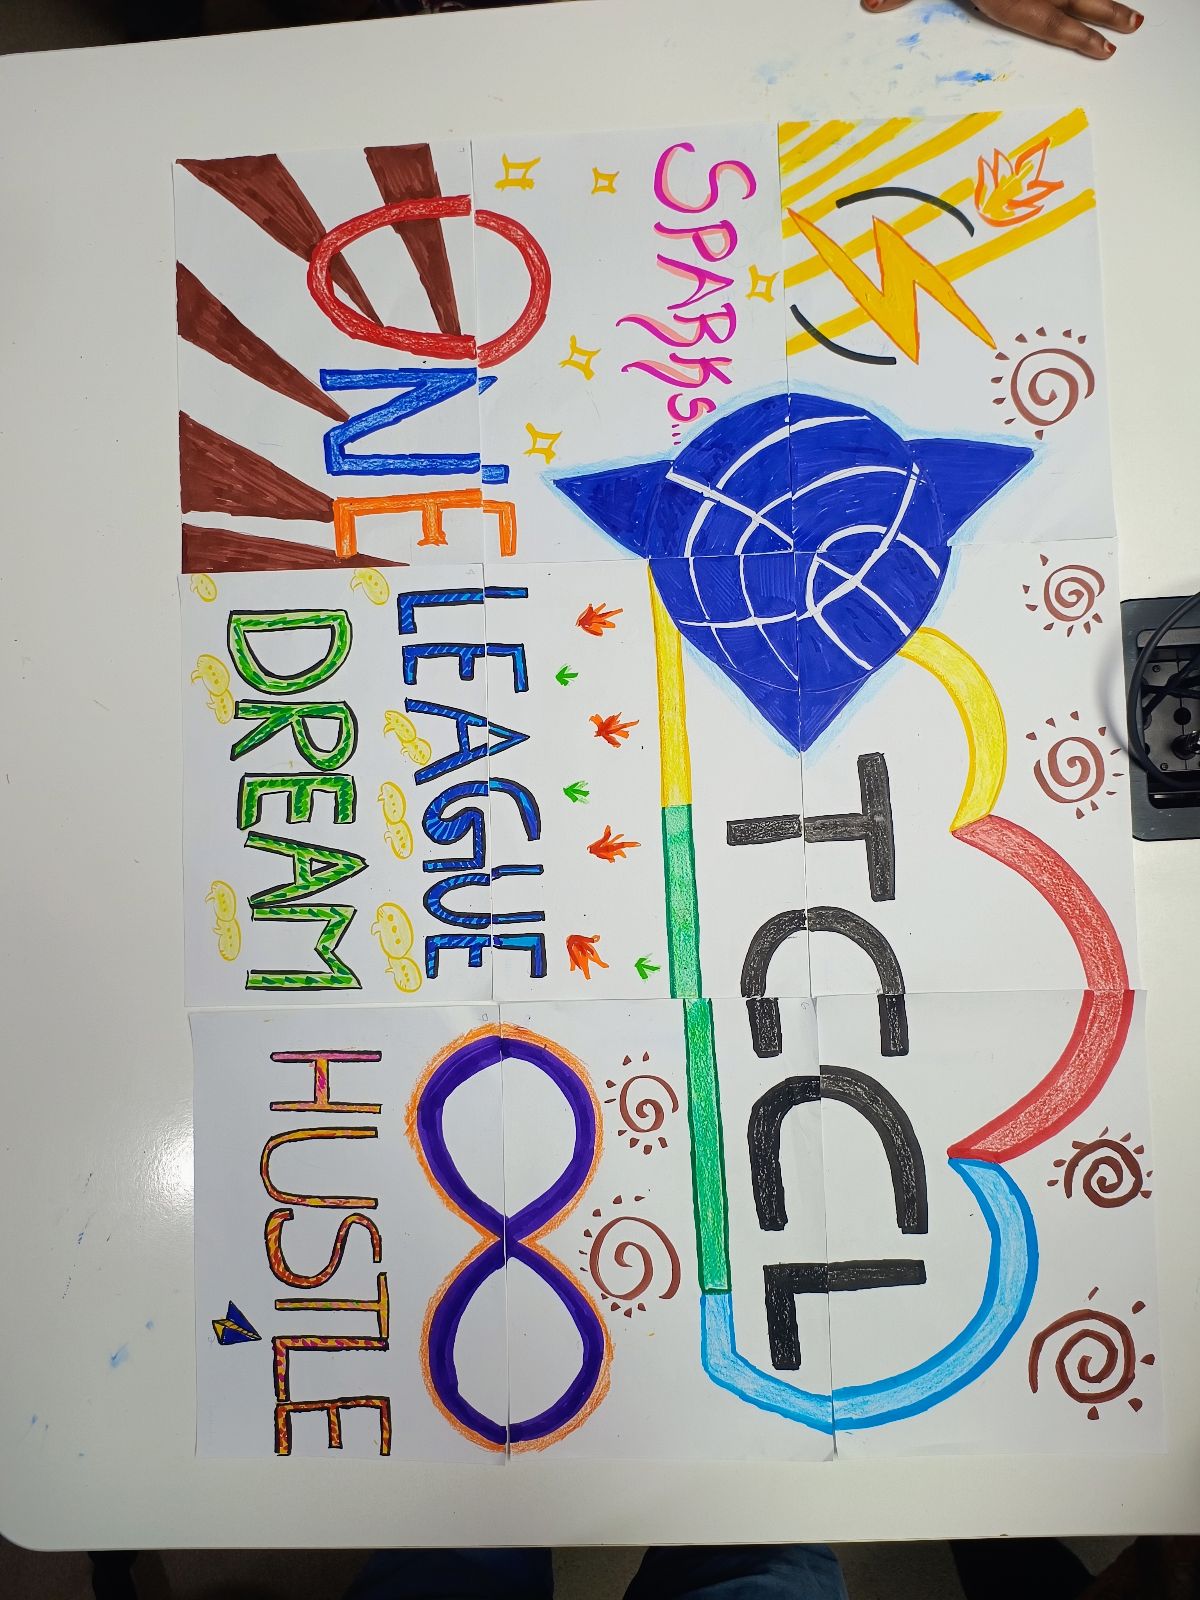 TCCL
SPARKS...
ONE
LEAGUE
DREAM
HUSTLE